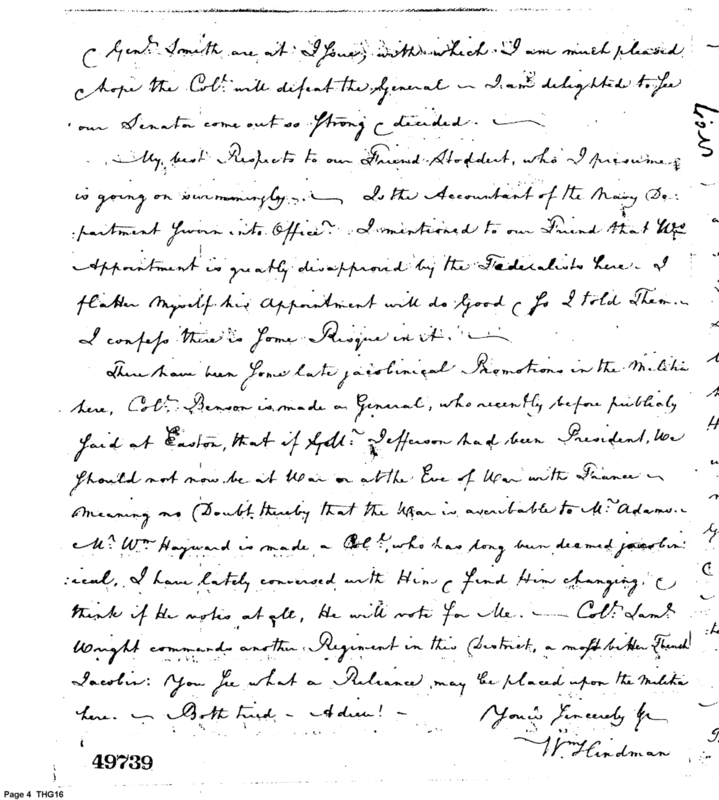 & Genl. Smith are at Issue, with which I am much pleased
& hope the Colo. will defeat the General — I am delighted to see
our Senator come out so strong & decided. —
My best Respects to our Friend Stoddert, who I presume
is going on swimmingly. — Is the Accountant of the Navy De:
:partment sworn into Office? I mentioned to our Friend that
Appointment is greatly disapproved by the Federalists here. I
flatter Myself his Appointment will do Good & so I told Them. —
I confess there is some Risque in it. —
There have been some late jacobinical Promotions in the Militia
here, Colo. Benson is made a General, who recently before publicly
said at Easton, that if Mr. Jefferson had been President, We
should not now be at War or at the Eve of War with France —
meaning no Doubt thereby that the War is ascribable to Mr. Adams. —
Mr. Wm. Hayward is made a Colo., who has long been deemed jacobin:
:ical, I have lately conversed with Him & find Him changing, &
think if He votes at all, He will vote for Me. — Colo. Saml.
Wright commands another Regiment in this District, a most bitter French
Jacobin: You see what a Reliance may be placed upon the Militia
here. — Both tired — Adieu! —
Your's Sincerely &c
Wm. Hindman
49739
Page 4 THG16